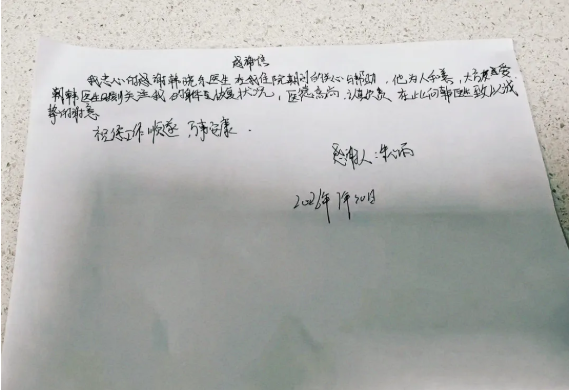 感谢信
我衷心的感谢韩晓东医生在我住院期间的关心与帮助，他为人和善，
韩医生时刻关注我的病情及恢复状况，医德高尚，在此向韩医生致以诚
挚的谢意
祝您工作顺遂 万事安康.
感谢人：朱
2026年1月20日